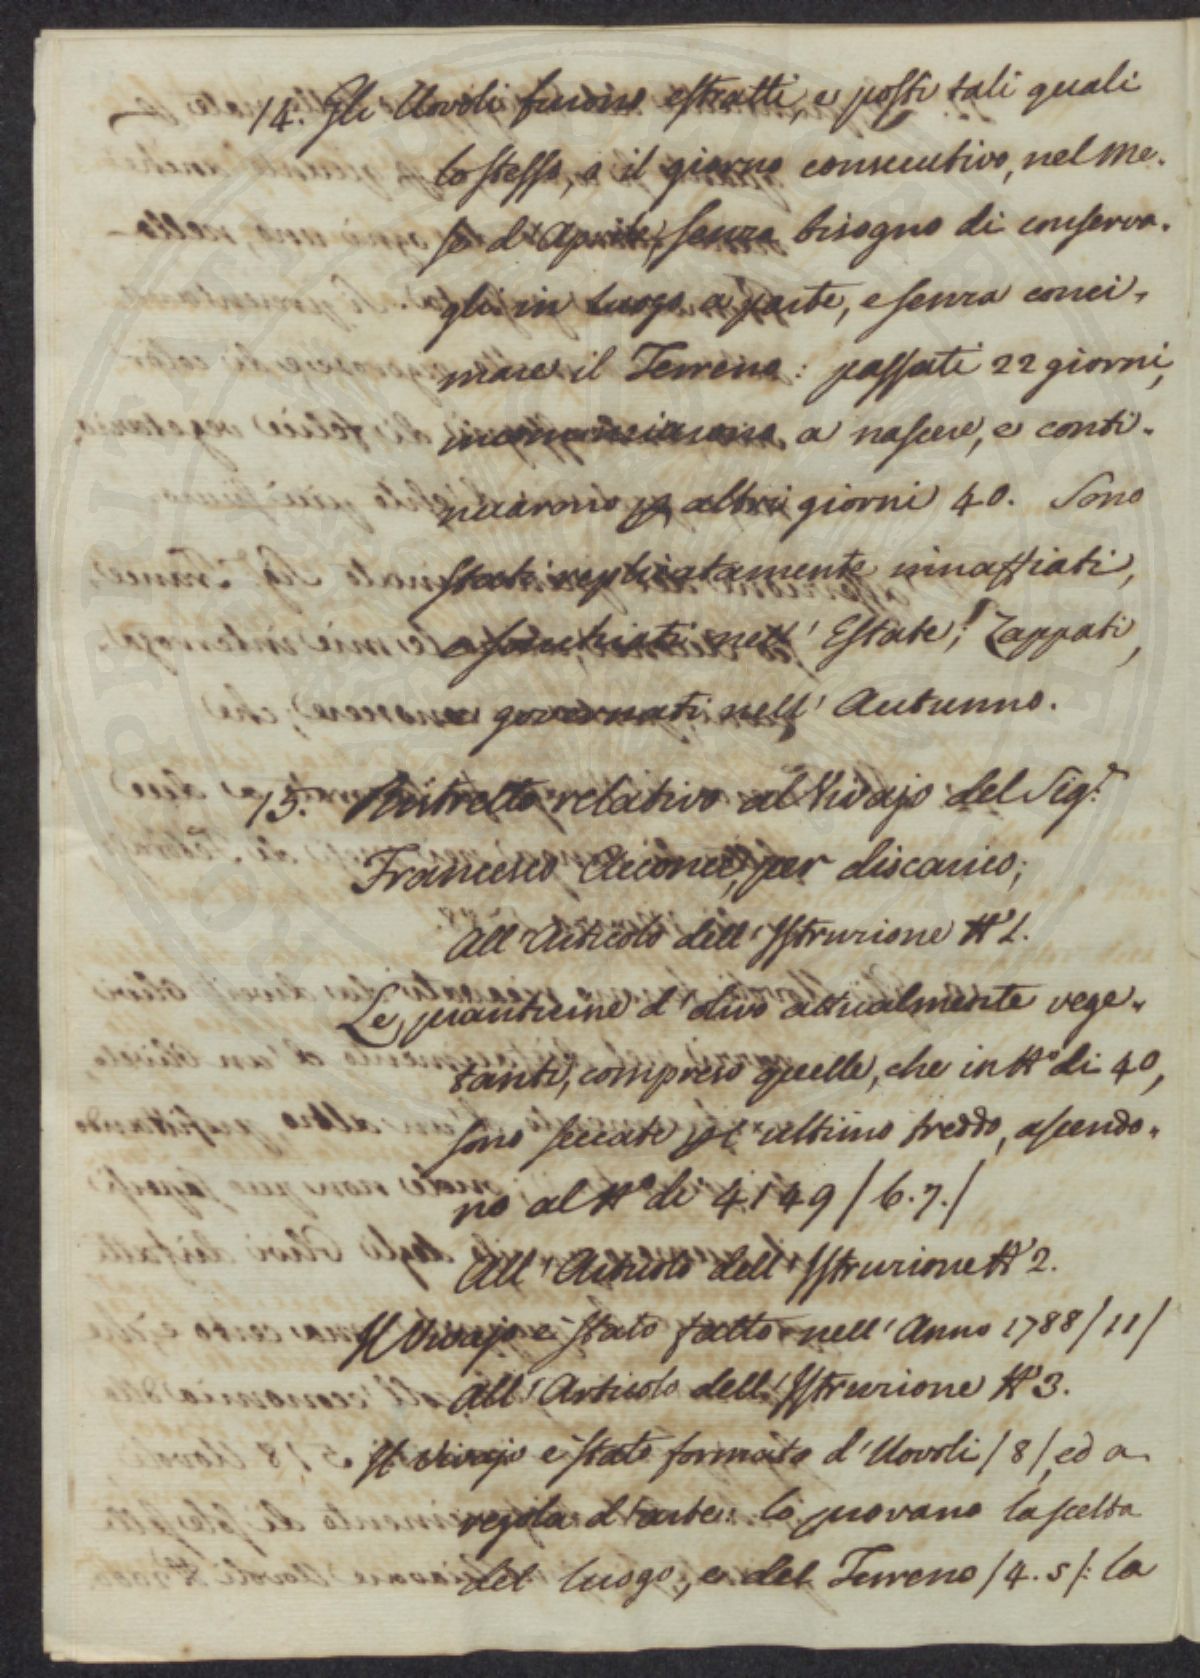 14. Gli Uovoli furono estratti, e posti tali quali
lo stesso, o il giorno consecutivo, nel Me-
se d'Aprile, senza bisogno di conserva-
gli in luogo a parte, e senza conci-
mare il Terreno: passati 22 giorni,
incominciarono a nascere, e conti-
nuarono p altri giorni 40. Sono
stati replicatamente innaffiati,
e sarchiati nell' Estate; Zappati,
e governati nell' Autunno.
15. Ristretto relativo al Vivajo del Sig.r
Francesco Cicconi, per discarico;
All'Articolo dell'Istruzione N° 1.
Le pianticine d'olivo attualmente vege-
tanti, compreso quelle, che in N° di 40,
sono seccate pl' ultimo freddo, ascendo-
no al N° di 4149 / 6.7./
All'Articolo dell'Istruzione N° 2.
Il Vivajo è stato fatto nell'Anno 1788 /11/
All'Articolo dell'Istruzione N° 3.
Il Vivajo è stato formato d'Uovoli /8/ ed a
regola d'arte: lo provano la scelta
del luogo, e del Terreno /4.5/: la